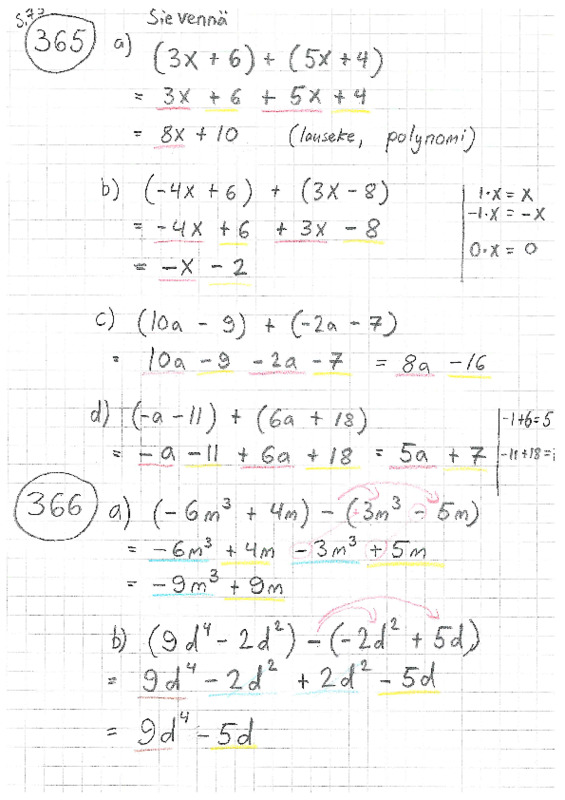 S.73
Sievennä
365 a) (3x + 6) + (5x + 4)
= 3x + 6 + 5x + 4
= 8x + 10 (lauseke, polynomi)
b) (-4x + 6) + (3x - 8)
= -4x + 6 + 3x - 8
= -x - 2
1·x = x
-1·x = -x
0·x = 0
c) (10a - 9) + (-2a - 7)
= 10a - 9 - 2a - 7 = 8a - 16
d) (-a - 11) + (6a + 18)
= -a - 11 + 6a + 18 = 5a + 7
-1+6=5
-11+18=
366 a) (-6m³ + 4m) - (3m³ - 5m)
= -6m³ + 4m - 3m³ + 5m
= -9m³ + 9m
b) (9d⁴ - 2d²) - (-2d² + 5d)
= 9d⁴ - 2d² + 2d² - 5d
= 9d⁴ - 5d